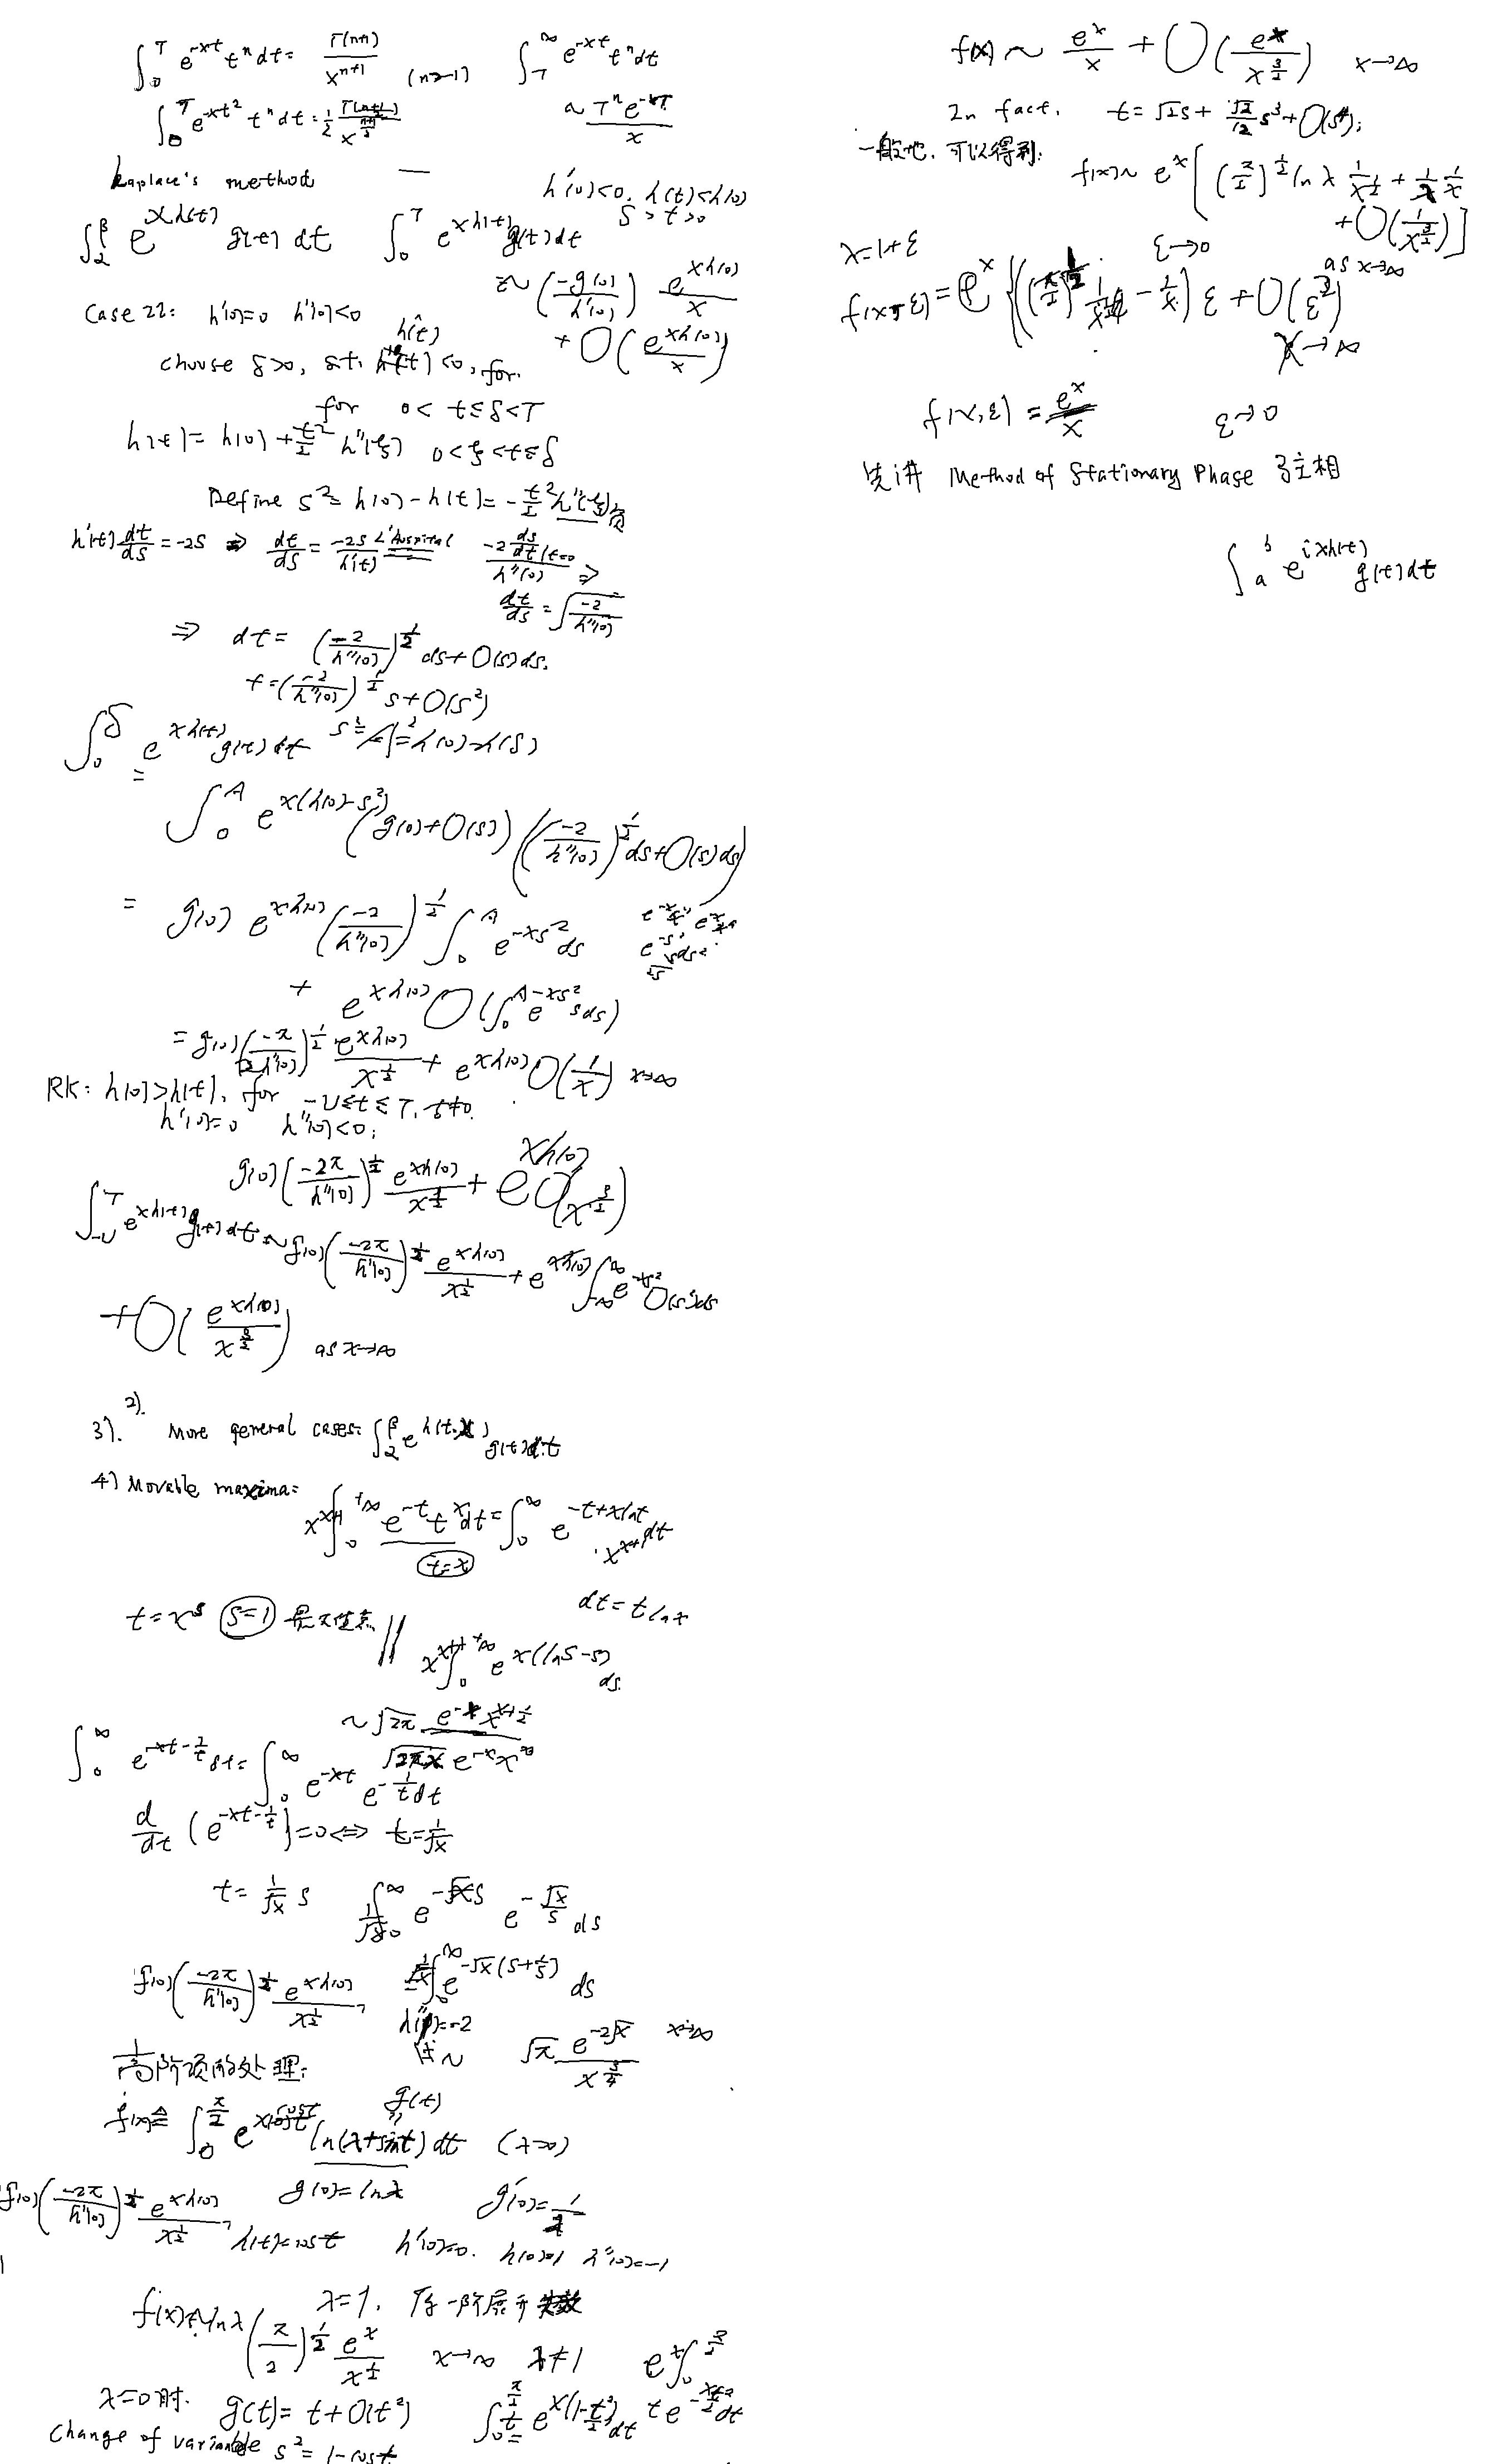 ∫_0^T e^{-xt} t^n dt = Γ(n+1)/x^{n+1} (n>-1) ∫_T^∞ e^{-xt} t^n dt
∫_0^T e^{-xt²} t^n dt = 1/2 Γ(n+1/2)/x^{(n+1)/2} ~ T^n e^{-xT}/x
Laplace's method — h'(0)<0, h(t)<h(0)
∫_α^β e^{xh(t)} g(t) dt ∫_0^T e^{xh(t)} g(t) dt δ>t>0
~ (-g(0)/h'(0)) e^{xh(0)}/x
Case 22: h'(0)=0 h''(0)<0
+ O(e^{xh(0)}/x)
choose δ>0, s.t. h'(t)<0, for.
for 0<t≤δ<T
h(t) = h(0) + t²/2 h''(ξ) 0<ξ<t≤δ
Define s² = h(0) - h(t) = -t²/2 h''(ξ) 负
h'(t) dt/ds = -2s ⇒ dt/ds = -2s/h'(t) L'hospital -2 ds/dt|t=0 / h''(0) ⇒
dt/ds = √(-2/h''(0))
⇒ dt = (-2/h''(0))^{1/2} ds + O(s) ds.
t = (-2/h''(0))^{1/2} s + O(s²)
∫_0^δ e^{xh(t)} g(t) dt A² = h(0) - h(δ)
= ∫_0^A e^{x(h(0)-s²)} (g(0)+O(s)) ((-2/h''(0))^{1/2} ds + O(s) ds)
= g(0) e^{xh(0)} (-2/h''(0))^{1/2} ∫_0^A e^{-xs²} ds
+ e^{xh(0)} O(∫_0^A e^{-xs²} s ds)
= g(0) (-π/2h''(0))^{1/2} e^{xh(0)}/x^{1/2} + e^{xh(0)} O(1/x) x→∞
RK: h(0)>h(t), for -U≤t≤T, t≠0.
h'(0)=0 h''(0)<0;
g(0) (-2π/h''(0))^{1/2} e^{xh(0)}/x^{1/2} + e^{xh(0)} O(x^{3/2})
∫_{-U}^T e^{xh(t)} g(t) dt ~ g(0) (-2π/h''(0))^{1/2} e^{xh(0)}/x^{1/2} + e^{xh(0)} ∫_{-∞}^∞ e^{-xs²} O(s²) ds
+ O(e^{xh(0)}/x^{3/2}) as x→∞
2).
3). More general cases: ∫_α^β e^{h(t,x)} g(t) dt
4) Movable maxima:
x^{x+1} ∫_0^{+∞} e^{-t} t^x dt = ∫_0^∞ e^{-t+xlnt} · x^{x+1} dt
t=x
t = xs s=1 是最大值点 dt = t ln x
x^{x+1} ∫_0^{+∞} e^{x(lns-s)} ds.
~ √2π e^{-x} x^{x+1/2}
√2πx e^{-x} x^x
∫_0^∞ e^{-xt-1/t} dt = ∫_0^∞ e^{-xt} e^{-1/t} dt
d/dt (e^{-xt-1/t}) = 0 ⇔ t = 1/√x
t = 1/√x s 1/√x ∫_0^∞ e^{-√x s} e^{-√x/s} ds
g(0) (-2π/h''(0))^{1/2} e^{xh(0)}/x^{1/2}, = 1/√x ∫_0^∞ e^{-√x(s+1/s)} ds
h''(1)=-2
~ √π e^{-2√x}/x^{3/4} x→∞
高阶项的处理:
g(t)
f(x) ≜ ∫_0^{π/2} e^{xcost} ln(λ+sint) dt (λ>0)
g(0) (-2π/h''(0))^{1/2} e^{xh(0)}/x^{1/2}, g(0)=lnλ g'(0)=1/λ
h(t)=cost h'(0)=0. h(0)=1 h''(0)=-1
λ=1, 任一阶展开失效
f(x) ~ lnλ (π/2)^{1/2} e^x/x^{1/2} x→∞ λ≠1
λ=0时. g(t) = t + O(t²) ∫_0^{π/2} t e^{x(1-t²/2)} dt e^x ∫_0^{π/2} t e^{-xt²/2} dt
Change of variable s² = 1-cost
f(x) ~ e^x/x + O(e^x/x^{3/2}) x→∞
In fact. t = √2 s + √2/12 s³ + O(s⁴);
一般地, 可以得到:
f(x) ~ e^x [(π/2)^{1/2} lnλ 1/x^{1/2} + 1/λ 1/x + O(1/x^{3/2})]
as x→∞
λ=1+ε ε→0
f(x,ε) = e^x {((π/2)^{1/2} 1/x^{1/2} - 1/x) ε + O(ε²)}
x→∞
f(x,ε) = e^x/x ε→0
先讲 Method of Stationary Phase 驻相
∫_a^b e^{ixh(t)} g(t) dt